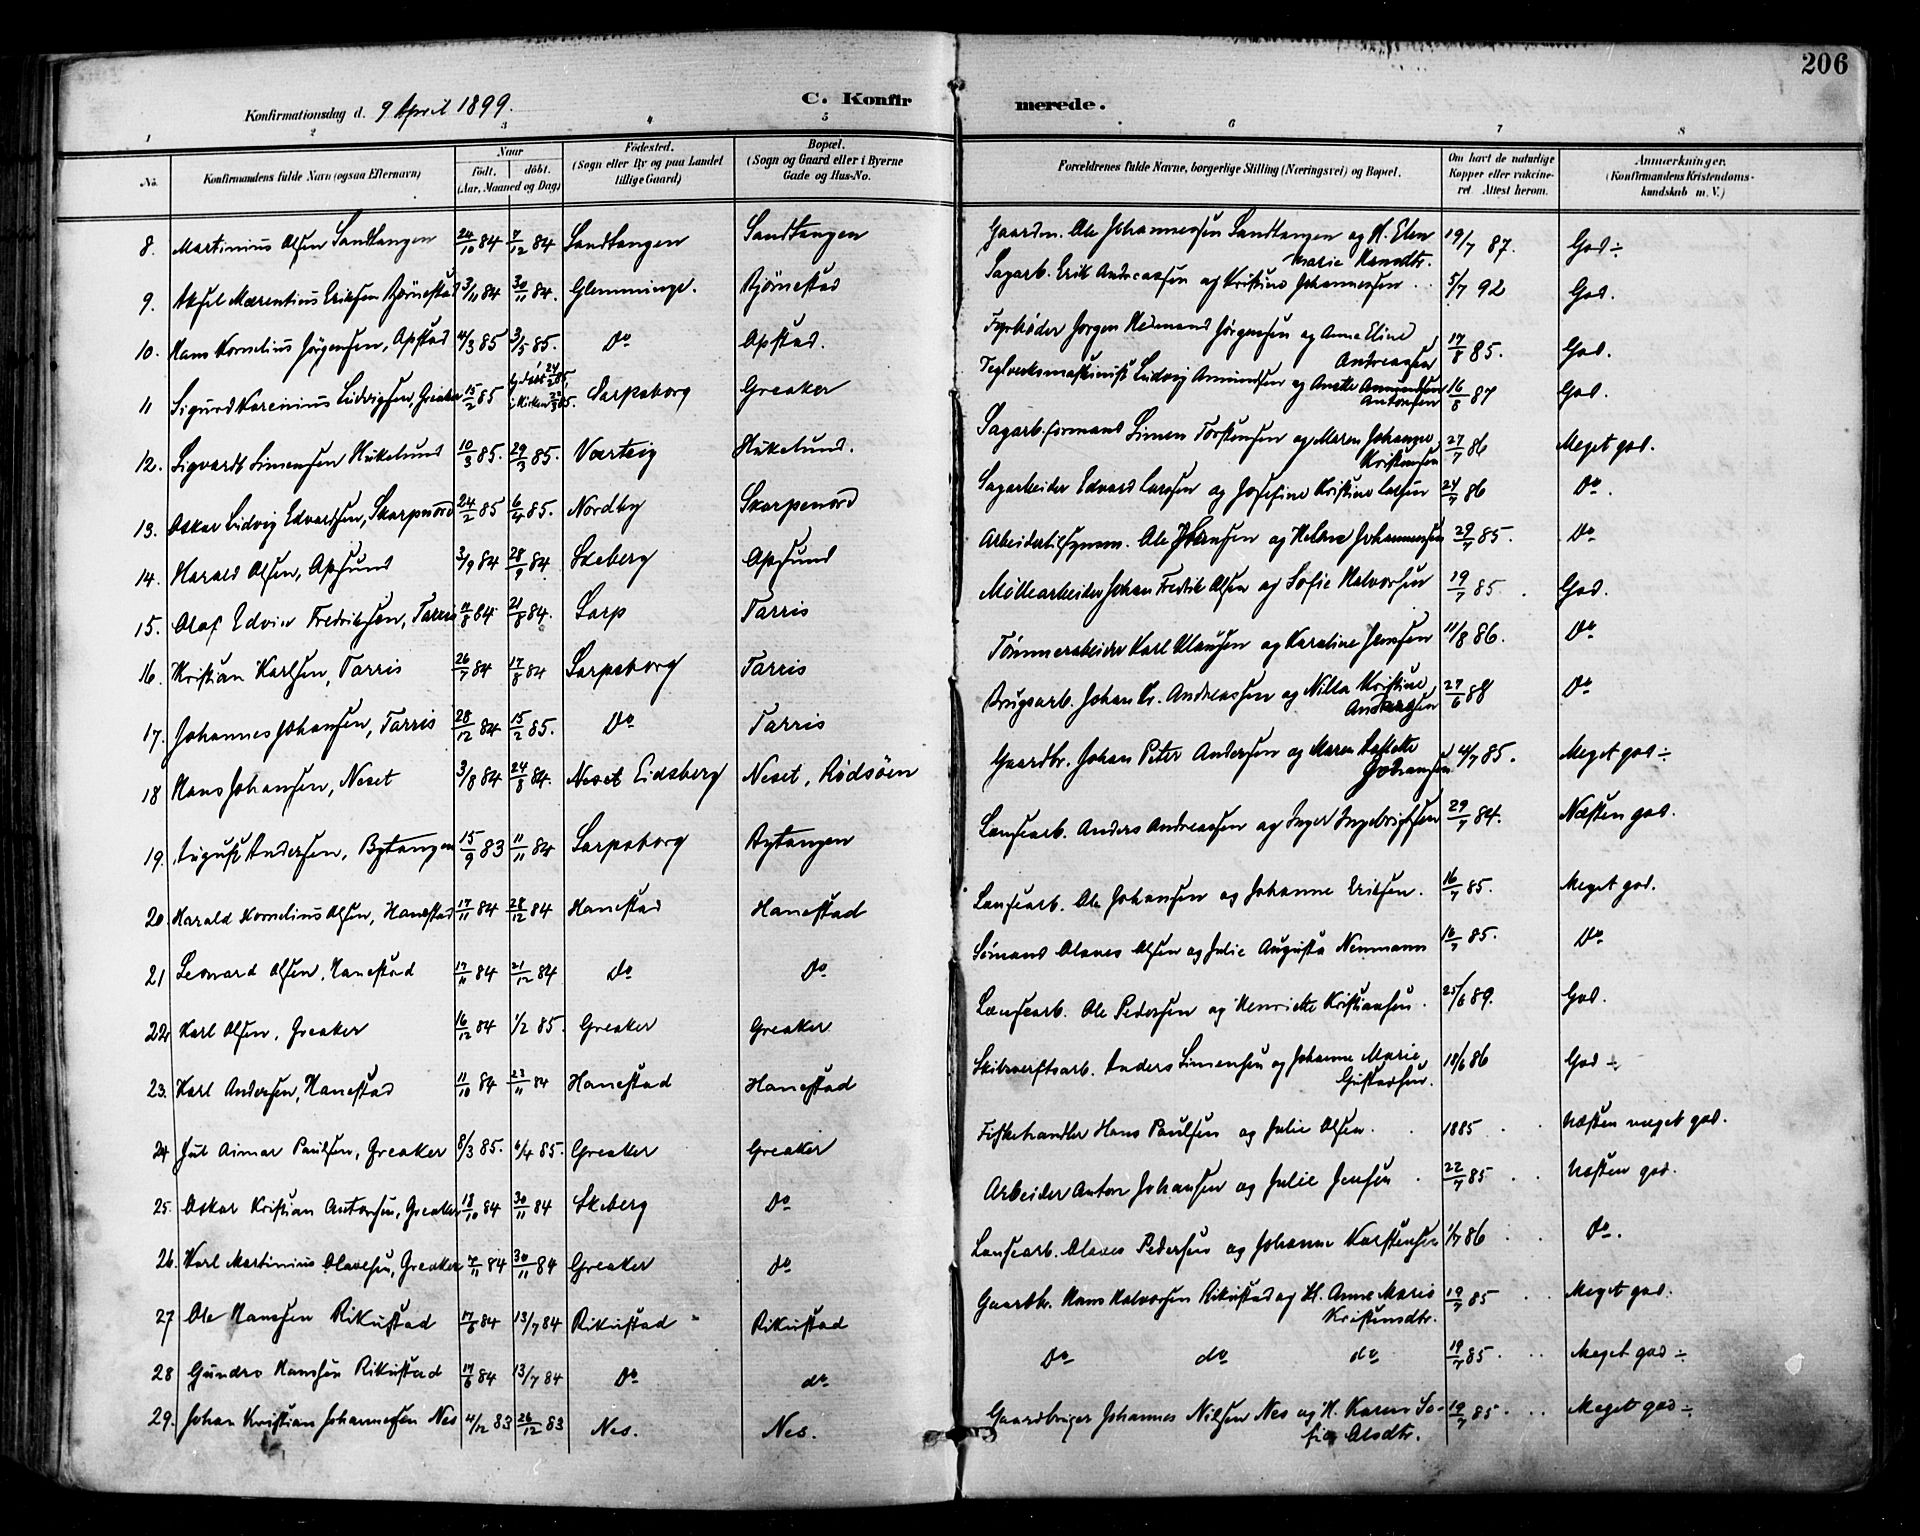 206
Konfirmationsdag d. 9 April 1899.
C. Konfirmerede.
1 2 3 4 5 6 7 8
No.
Konfirmandens fulde Navn (ogsaa Efternavn)
Naar
født. døbt.
(Aar, Maaned og Dag)
Fødested.
(Sogn eller By og paa Landet
tillige Gaard)
Bopæl.
(Sogn og Gaard eller i Byerne
Gade og Hus-No.
Forældrenes fulde Navne, borgerlige Stilling (Næringsvei) og Bopæl.
Om havt de naturlige
Kopper eller vakcine-
ret Attest herom.
Anmærkninger.
(Konfirmandens Kristendoms-
kundskab m. V.)
8. Martinius Olsen Sandtangen 24/10 84 7/12 84 Sandtangen Sandtangen Gaardm. Ole Johannessen Sandtangen og H. Elen 19/7 87. God ÷
Marie Hansdtr.
9. Aksel Mærentius Eriksen Bjørnestad 3/11 84 30/11 84. Glemminge. Bjørnestad Sagarb. Erik Andreassen og Kristine Johannessen 5/7 92 God.
10. Hans Kornelius Jørgensen, Apstad 11/3 85 3/5 85. Do Apstad. Fyrbøder Jørgen Hermand Jørgensen og Anne Eline 17/8 85. God.
Andreassen
11 Sigurd Karenius Ludvigsen, Greaker 15/2 85 Sarpsborg Greaker Teglverksmaskinist Ludvig Amundsen og Anette Amundsen 16/8 87 God.
Antonsen
12. Sigvardt Simensen Hukelund 10/3 85. 29/3 85. Varteig Hukelund. Sagarb.formand Simen Torstensen og Maren Johanne 27/7 86 Meget god.
Kristensen
13. Oskar Ludvig Edvardsen, Skarpenord 24/2 85 6/4 85. Nordby Skarpenord Sagarbeider Edvard Larsen og Josefine Kristine Larsen 24/7 86 Do.
14. Harald Olsen, Apsund 3/9 84 28/9 84 Skeberg Apsund Arbeidertilsynsm. Ole Johansen og Helene Johannessen 29/7 85. Do
15. Olaf Edvin Fredriksen, Tarris 11/8 84 21/8 84. Sarp Tarris Møllearbeider Johan Fredrik Olsen og Sofie Halvorsen 19/7 85. God.
16. Kristian Karlsen, Tarris 26/7 84 17/8 84 Sarpsborg Tarris Tømmerarbeider Karl Klausen og Karoline Jensen 11/8 86. Do
17. Johannes Johansen, Tarris 28/12 84 15/2 85. Do Tarris Brugsarb. Johan Kr. Andreassen og Nilla Kristine 27/6 88 Do
18 Hans Johansen, Neset 3/8 84 24/8 84. Neset Eidsberg Neset, Rødsøen Gaardbr. Johan Peter Andersen og Maren 4/7 85. Meget god ÷
Johansen
19. August Andersen, Bytangen 15/9 83 11/11 84 Sarpsborg Bytangen Lænsearb. Anders Andreassen og Inger Ingebrigtsen 29/7 84. Næsten god.
20. Harald Kornelius Olsen, Hanestad 17/11 84 28/12 84 Hanestad Hanestad Lænsearb. Ole Johansen og Johanne Eriksen. 16/7 85. Meget god.
21 Leonard Olsen, Hanestad 17/11 84 21/12 84 Do Do Sømand Olaves Olsen og Julie Augusta Neumann 16/7 85. Do
22. Karl Olsen, Greaker 16/12 84 1/2 85. Greaker Greaker Lænsearb. Ole Pedersen og Henriette Kristiansen. 25/6 89. God.
23. Karl Andersen, Hanestad 11/10 84 23/11 84 Hanestad Hanestad Skibsverftsarb. Anders Simensen og Johanne Marie 18/6 86 God ÷
Gustavsen.
24 Jul Aimar Paulsen, Greaker 8/3 85. 6/4 85. Greaker Greaker Fiskehandler Hans Paulsen og Julie Olsen. 1885 Næsten meget god.
25. Oskar Kristian Antonsen, Greaker 18/10 84 30/11 84 Skeberg Do Arbeider Anton Johansen og Julie Jensen 22/7 85 Næsten god.
26. Karl Martinius Olavesen, Greaker 7/11 84 30/11 84 Greaker do Lænsearb. Olaves Pedersen og Johanne Karstensen 1/7 86 Do.
27 Ole Hansen Rikustad 17/6 84 13/7 84 Rikustad Rikustad Gaardbr. Hans Halvorsen Rikustad og H. Anne Marie 19/7 85 Meget god.
Kristensdtr.
28 Gundro Hansen Rikustad 17/6 84 13/7 84 Do do Do do do 19/7 85. Meget god ÷
29. Johan Kristian Johannessen Nes 4/12 83 26/12 83 Nes. Nes. Gaardbruger Johannes Nilsen Nes og H. Karen So- 19/7 85. Meget god ÷
fie Olsdtr.